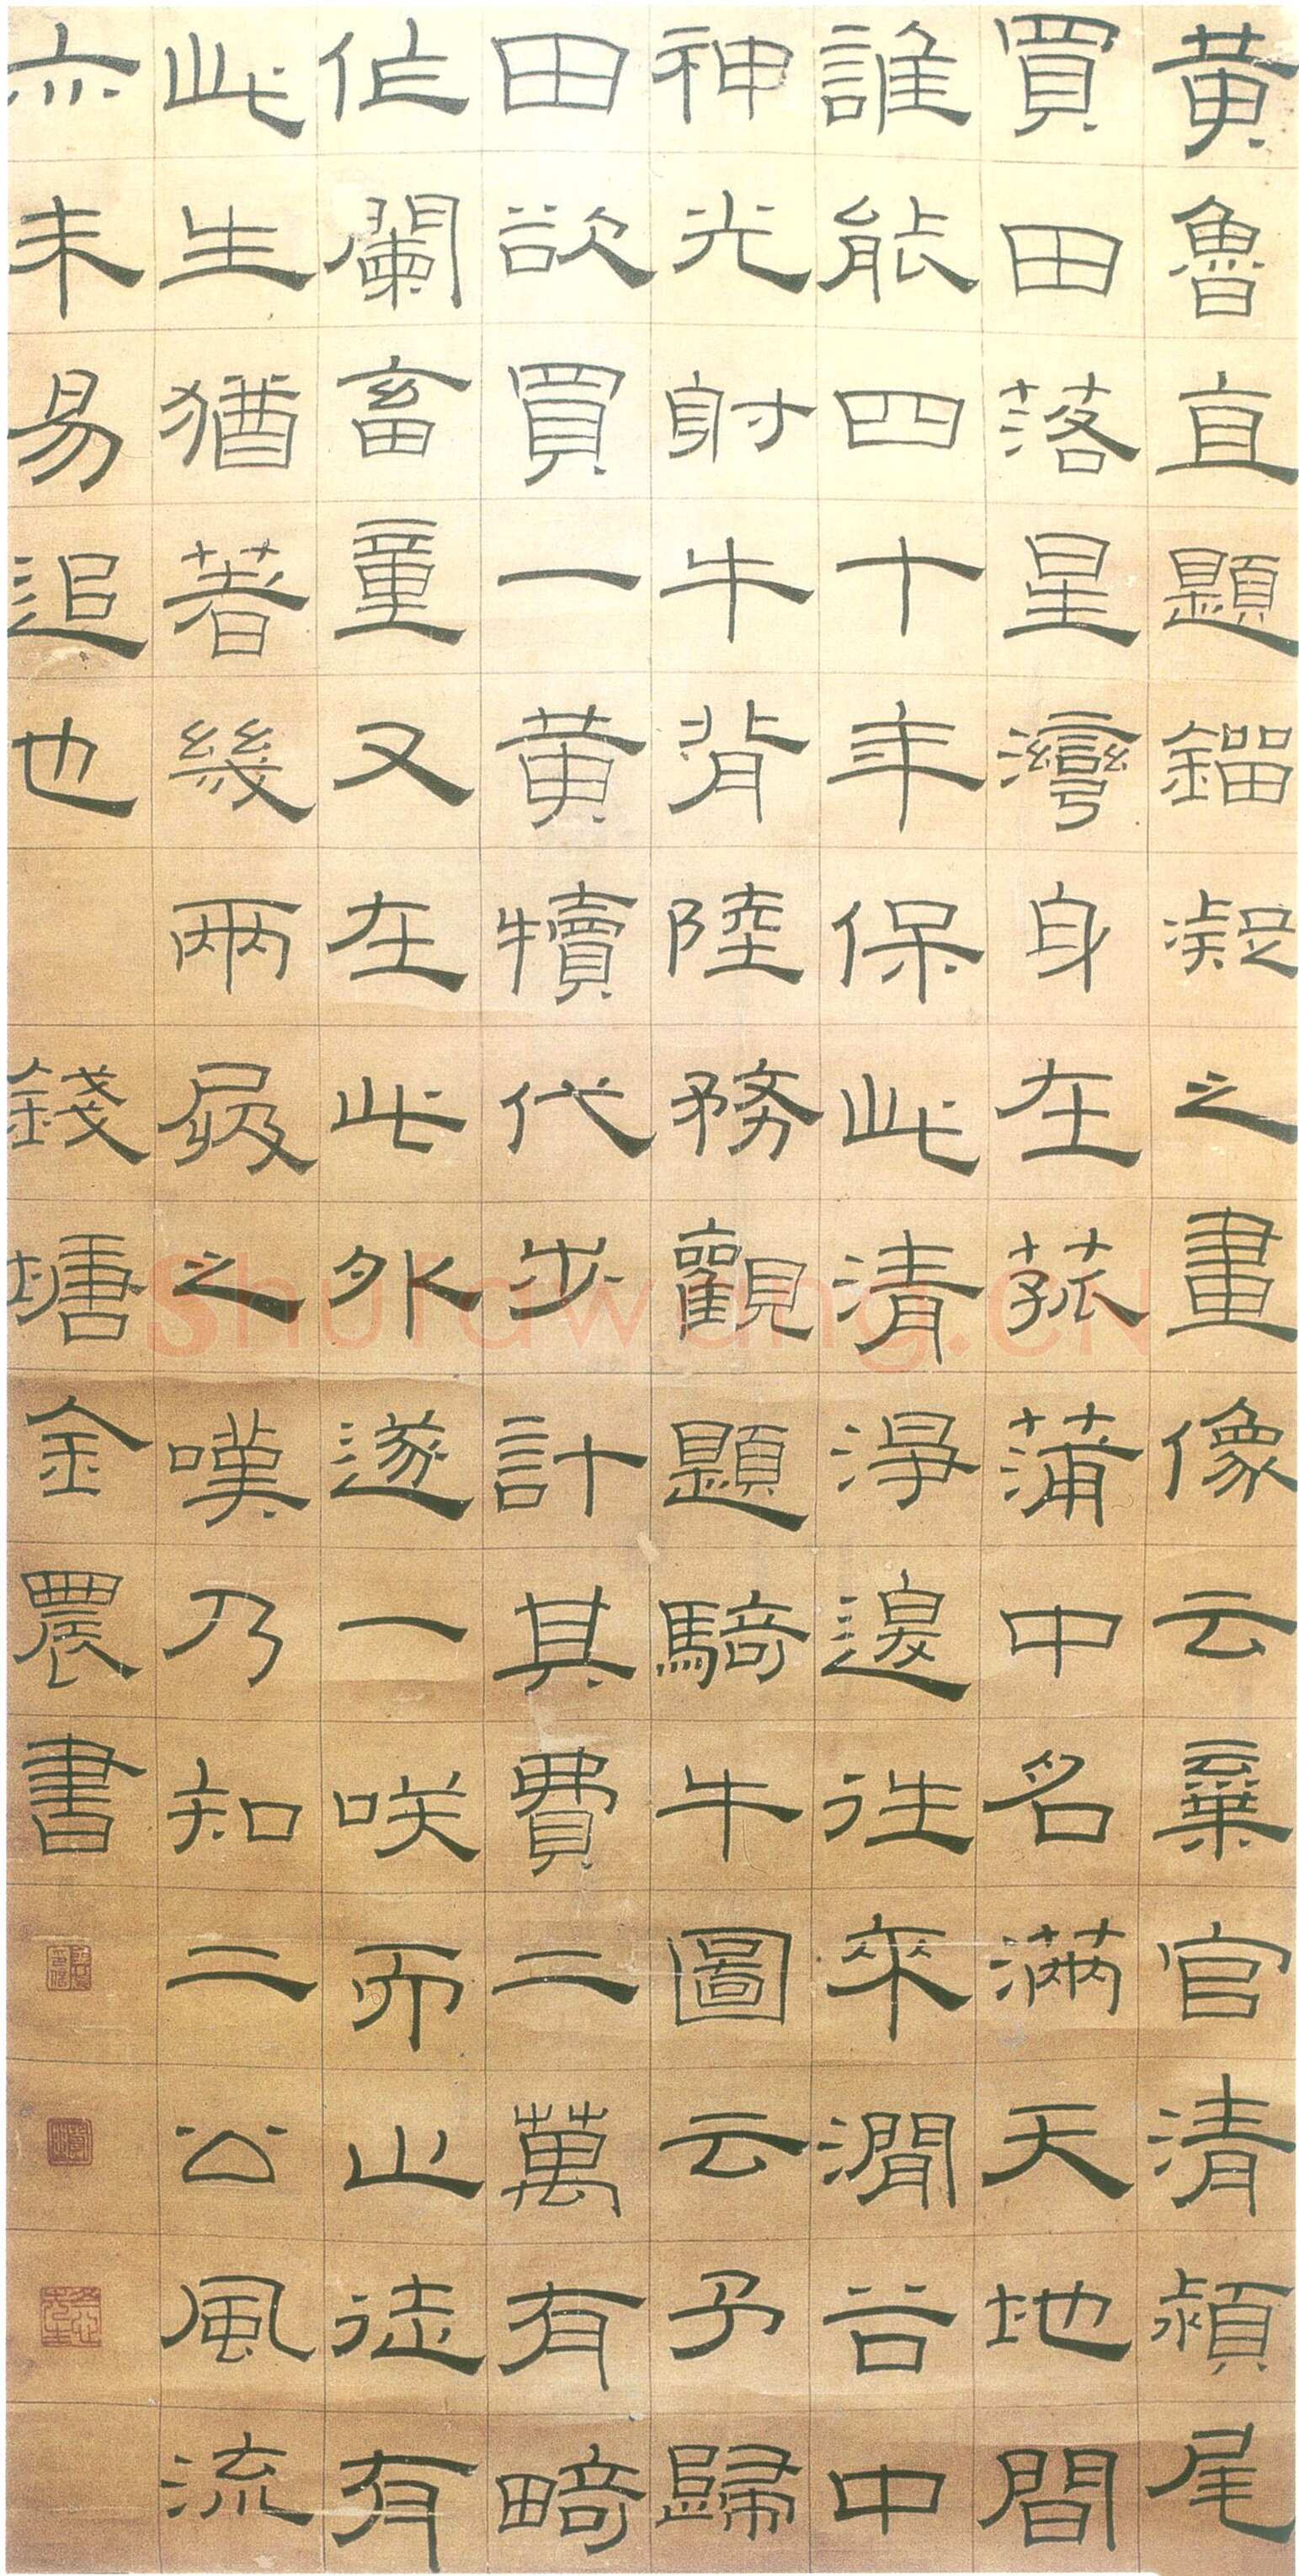 黄魯直題鎦凝之畫像云棄官清潁尾
買田落星灣身在菰蒲中名滿天地間
誰能四十年保此清淨邊往來澗谷中
神光射牛背陸務觀題騎牛圖云予歸
田欲買一黄犢代步計其費二萬有畸
作闌畜童又在此外遂一咲而止徒有
此生猶著幾兩屐之嘆乃知二公風流
亦未易追也 錢塘金農書
Shufawang.CN